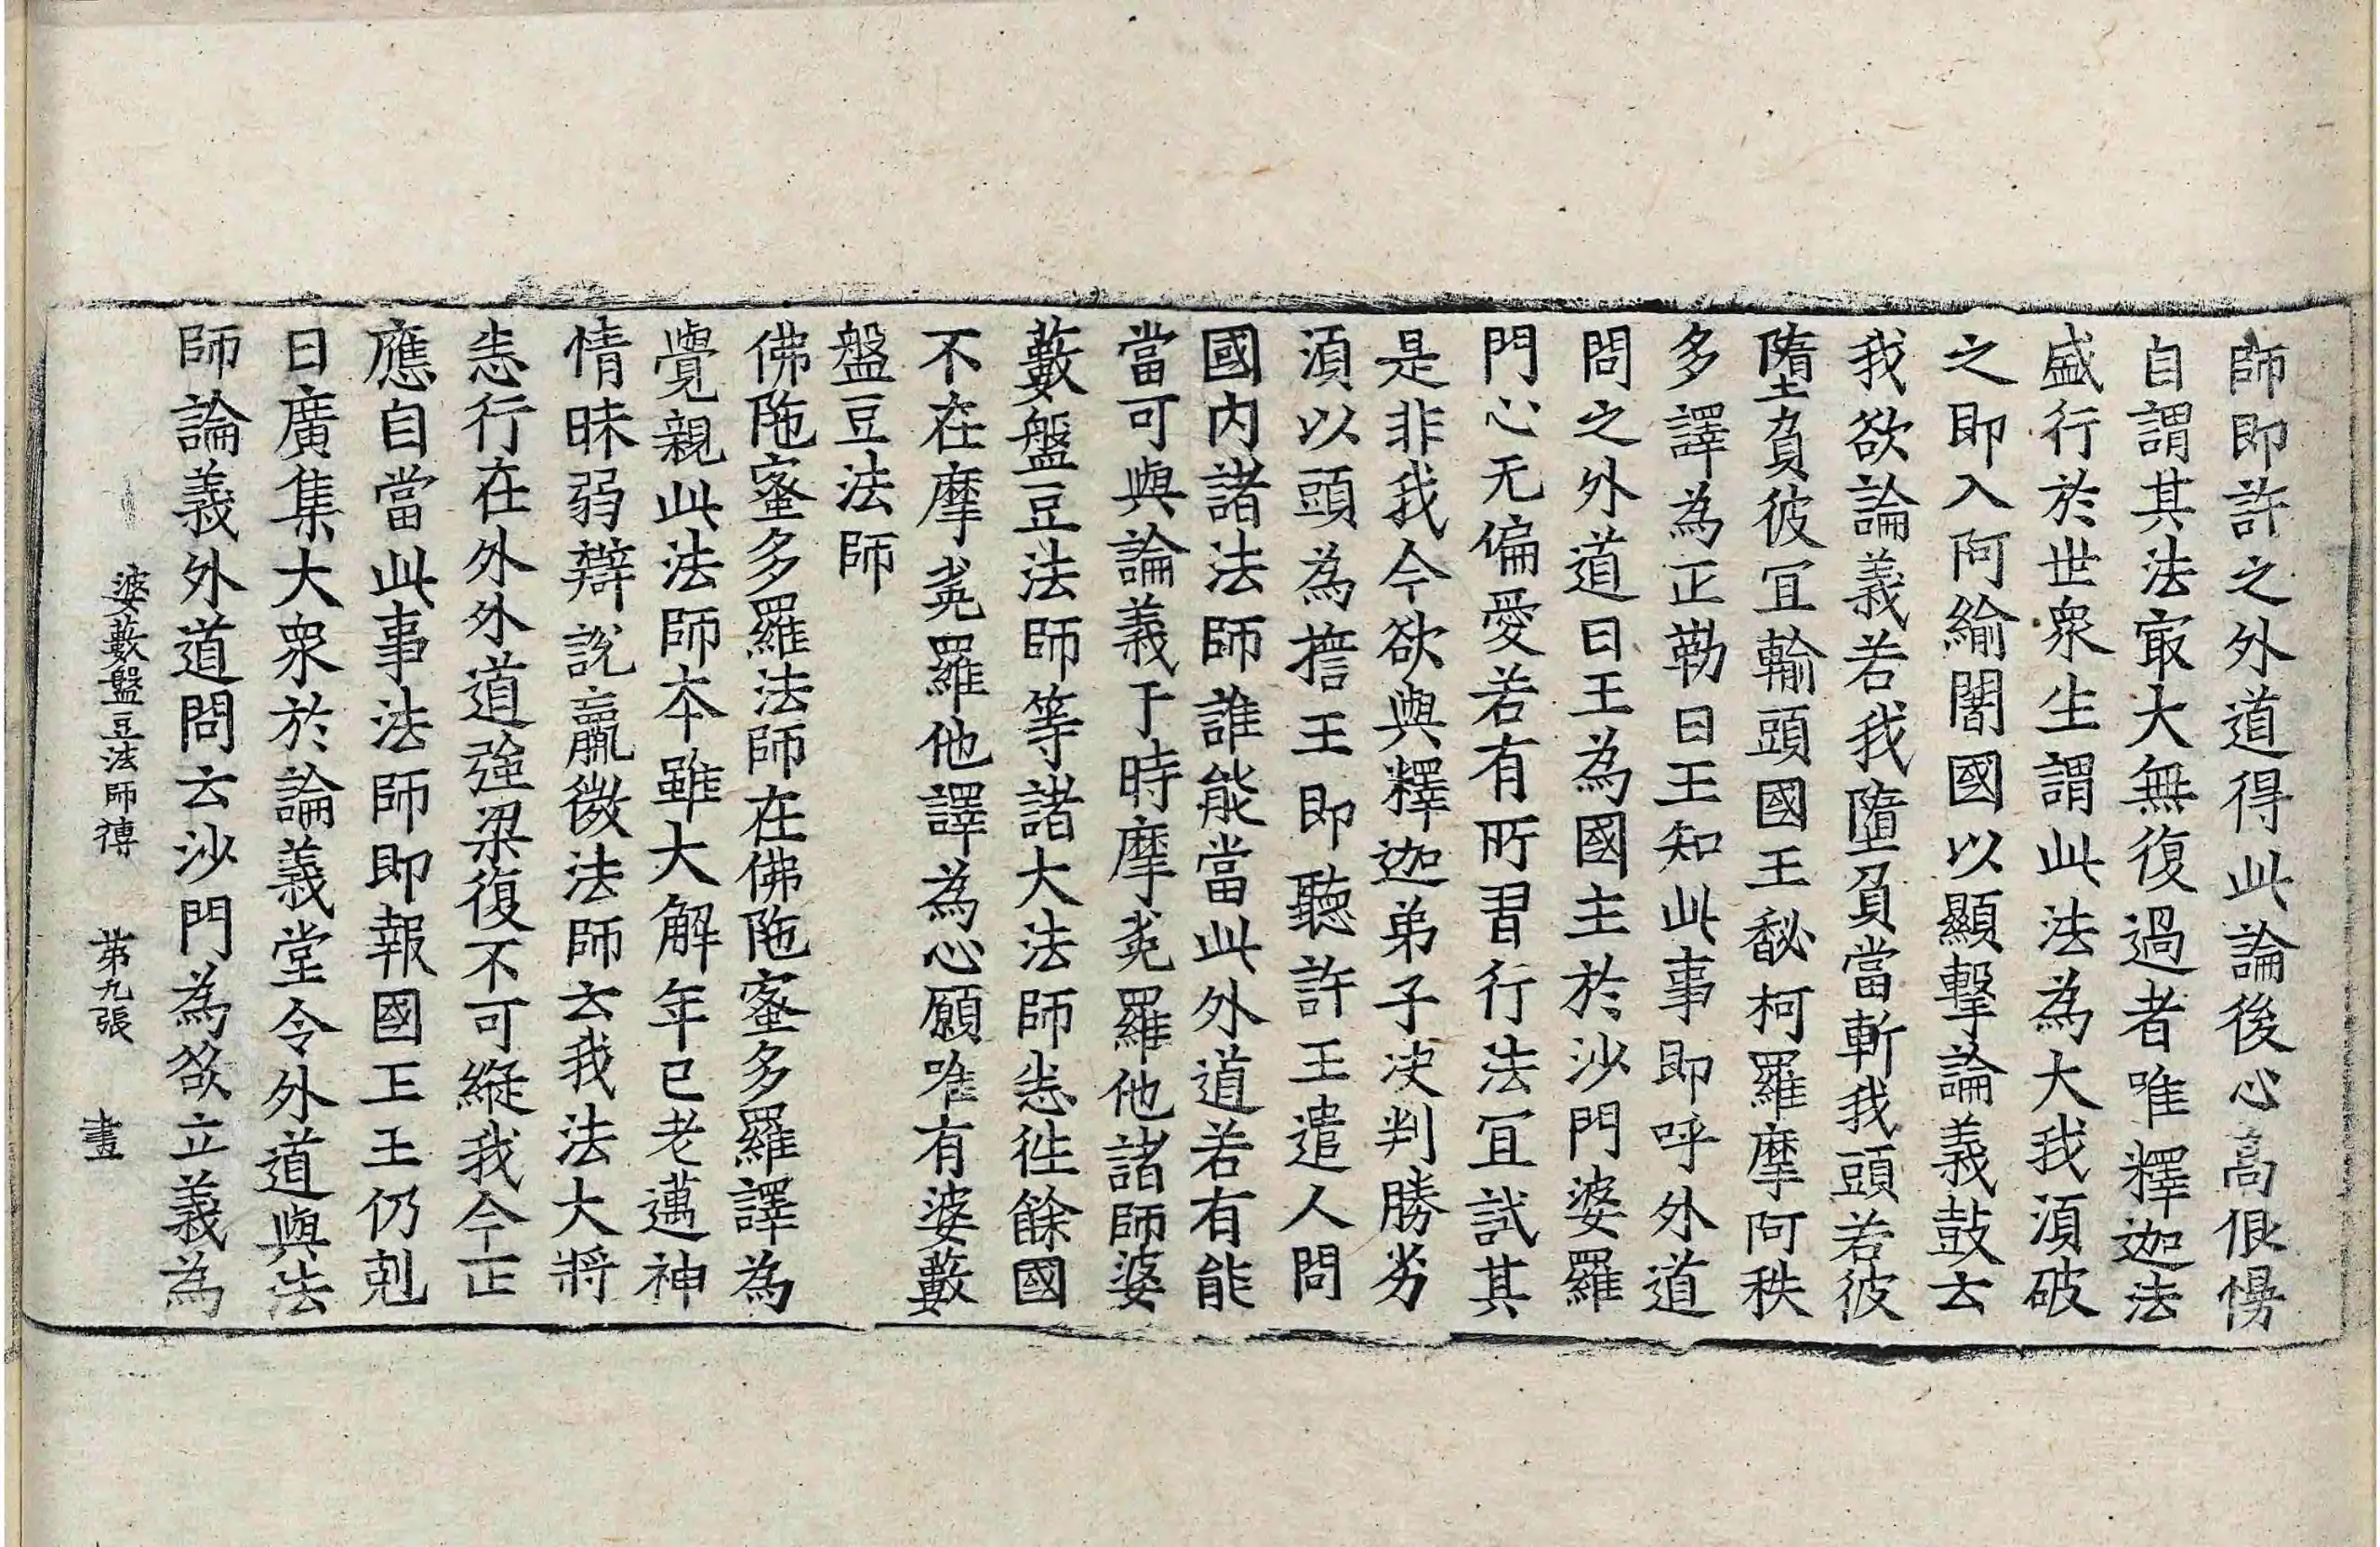 師即許之外道得此論後心高佷慢
自謂其法㝡大無復過者唯釋迦法
盛行於世衆生謂此法為大我湏破
之即入阿綸闍國以顯擊論義鼓云
我欲論義若我墮負當斬我頭若彼
墮負彼冝輸頭國王馝柯羅摩阿秩
多譯為正勒日王知此事即呼外道
問之外道曰王為國主於沙門婆羅
門心无偏愛若有所習行法冝試其
是非我今欲與釋迦弟子决判勝劣
湏以頭為㨾王即聽許王遣人問
國内諸法師誰能當此外道若有能
當可與論義于時摩㝹羅他諸師婆
藪盤豆法師等諸大法師悉徃餘國
不在摩㝹羅他譯為心願唯有婆藪
盤豆法師
佛陁蜜多羅法師在佛陁蜜多羅譯為
覺親此法師本雖大解年已老邁神
情昧弱辯說羸微法師云我法大將
悉行在外外道强梁復不可縱我今正
應自當此事法師即報國王王仍剋
日廣集大衆於論義堂令外道與法
師論義外道問云沙門為欲立義為
婆藪盤豆法師傳 第九張 畫